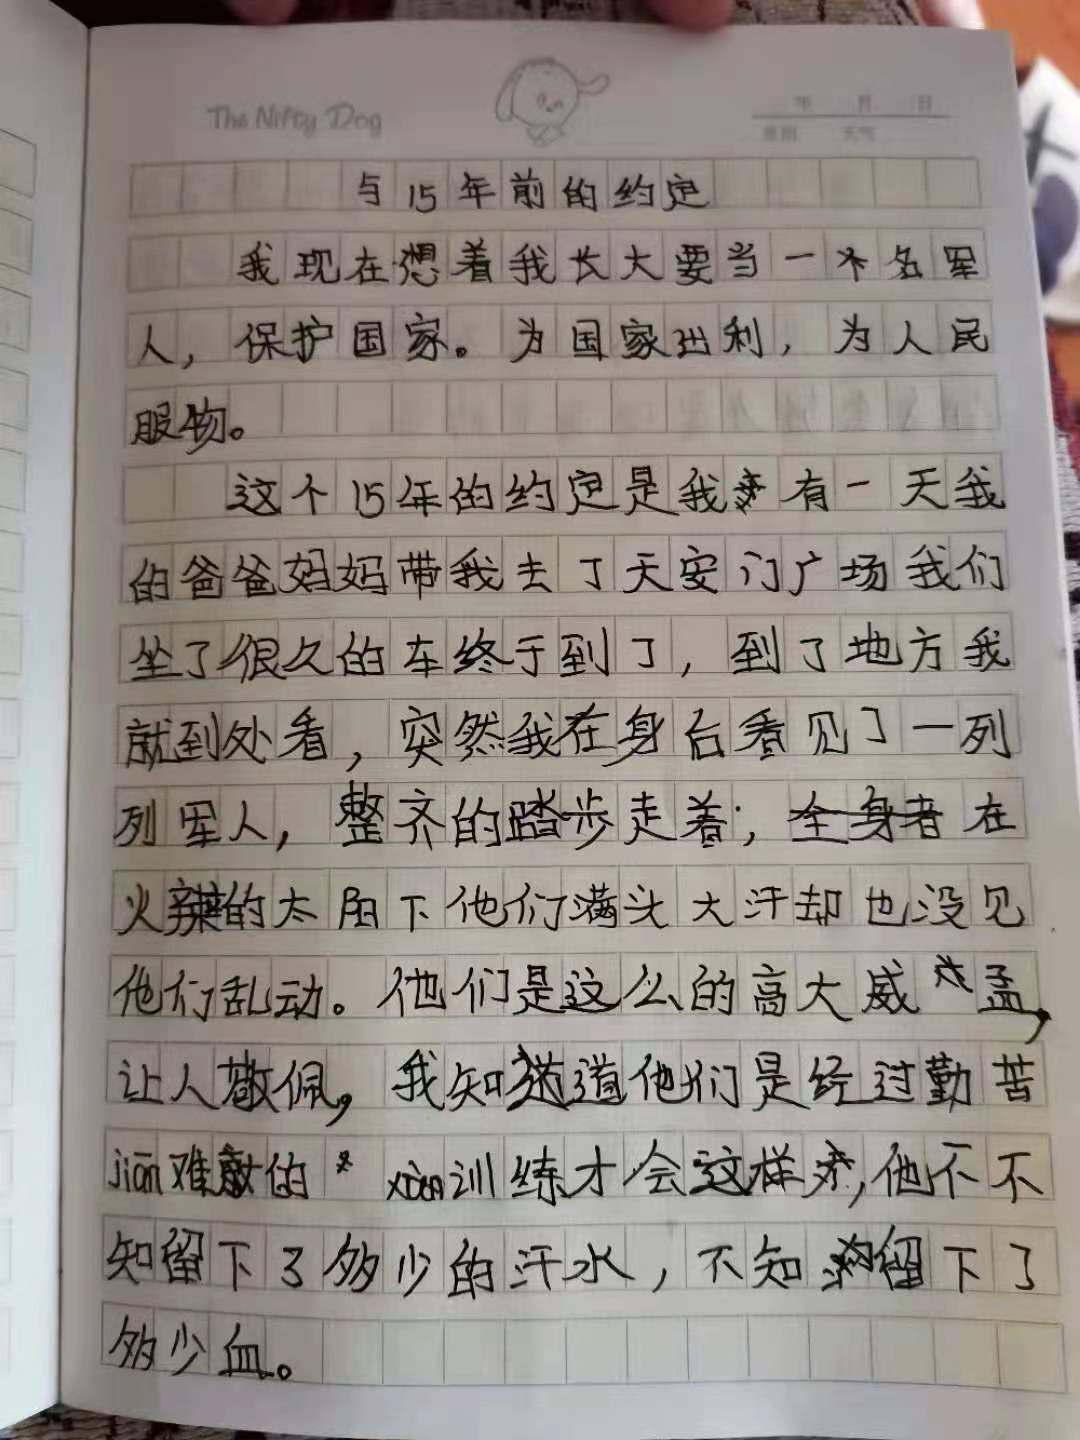 The Nifty Dog
年 月 日
星期 天气
与15年前的约定
我现在想着我长大要当一个名军
人，保护国家。为国家出利，为人民
服物。
这个15年的约定是我 有一天我
的爸爸妈妈带我去了天安门广场我们
坐了很久的车终于到了，到了地方我
就到处看，突然我在身后看见了一列
列军人，整齐的踏步走着；全身者在
火辣的太阳下他们满头大汗却也没见
他们乱动。他们是这么的高大威 孟，
让人敬佩，我知道道他们是经过勤苦
jiān难 的 xùn训练才会这样 ，他不不
知留下了多少的汗水，不知 留下了
多少血。